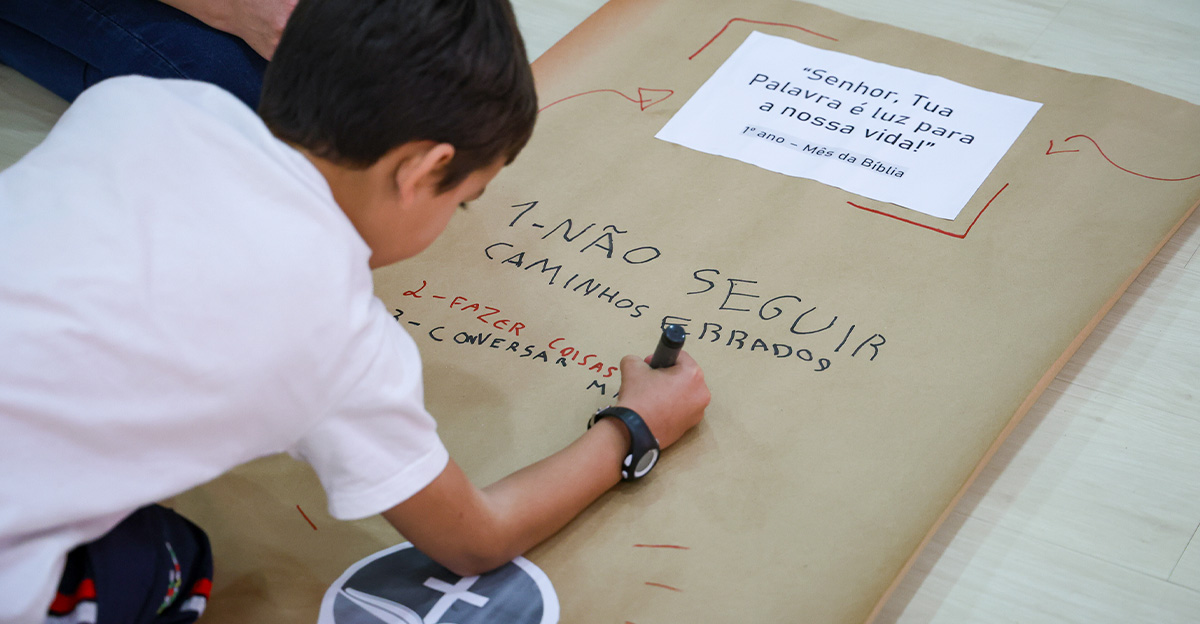 “Senhor, Tua
Palavra é luz para
a nossa vida!”
1º ano – Mês da Bíblia
1-NÃO SEGUIR
CAMINHOS ERRADOS
2-FAZER COISAS
3-CONVERSAR